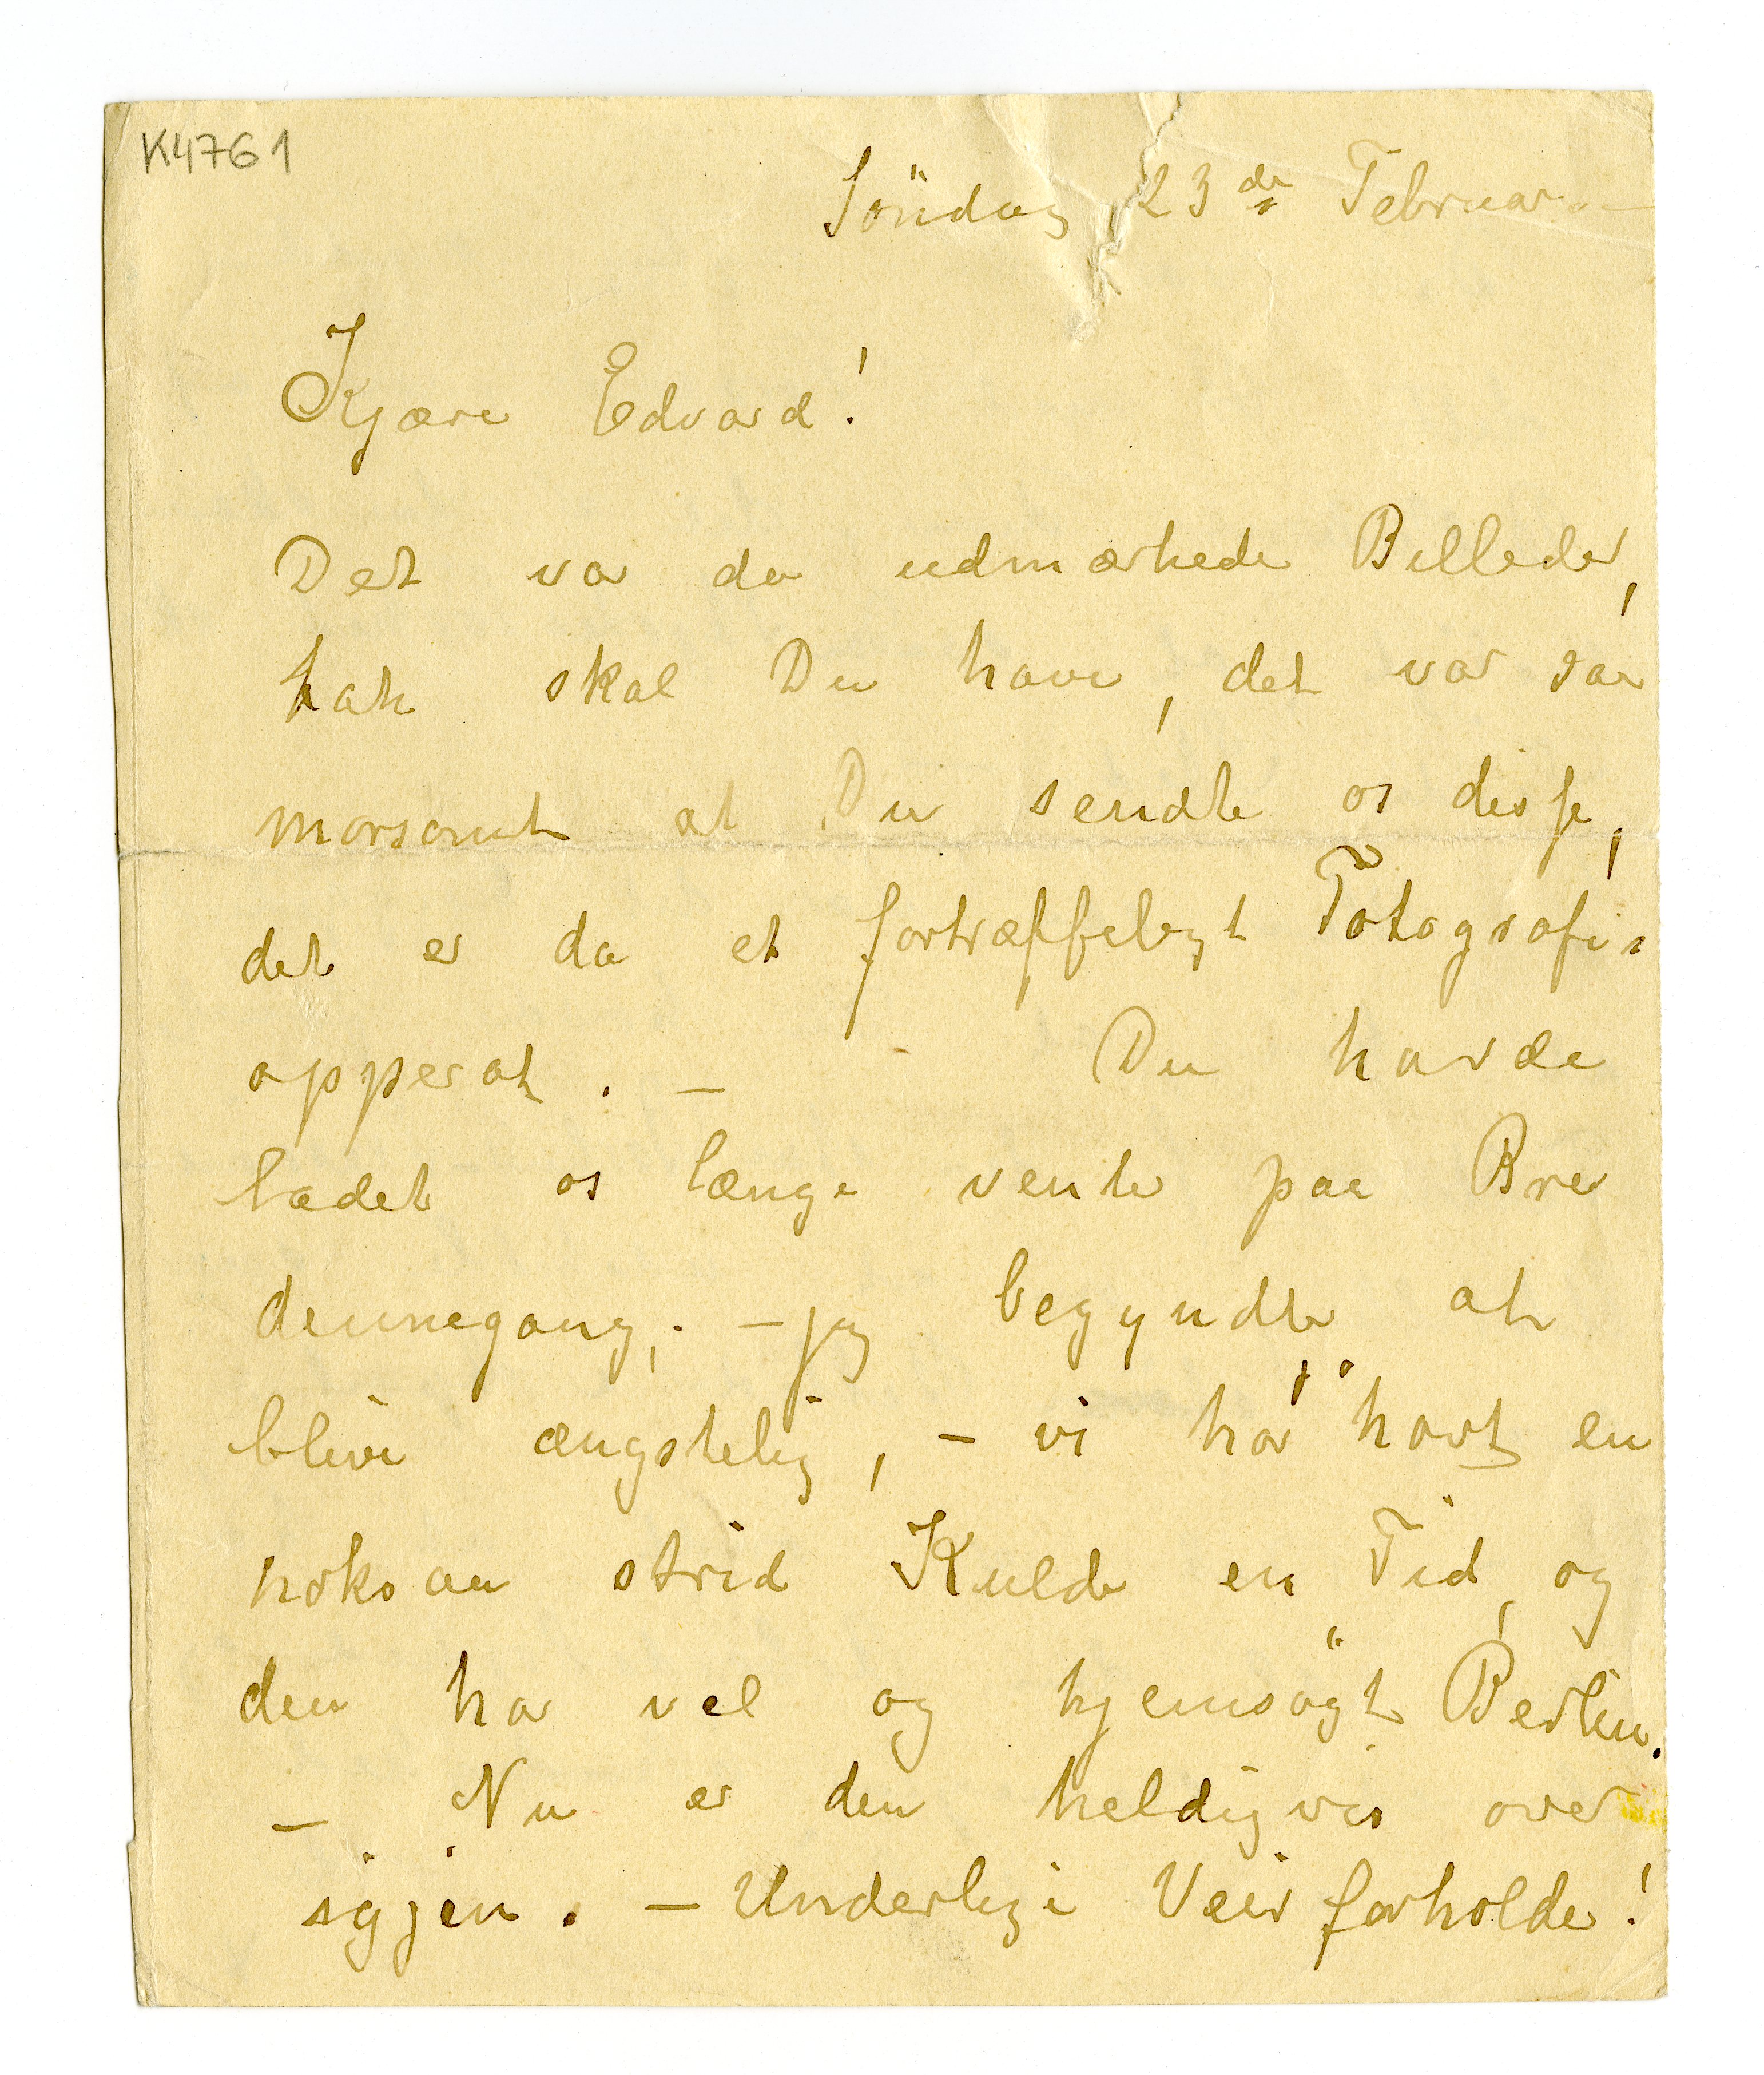 K4761
Söndag 23de Februar. –
Kjære Edvard!
Det var da udmærkede Billeder,
tak skal Du have, det var saa
morsomt at Du sendte os disse,
det er da et fortræffeligt Fotografi-
apperat. – Du havde
ladet os længe vente paa Brev
dennegang; – jeg begyndte at
blive ængstelig, – vi har havt en
noksaa strid Kulde en Tid, og
den har vel og hjemsögt Berlin.
– Nu er den heldigvis over
igjen. – Underlige Veirforholde!